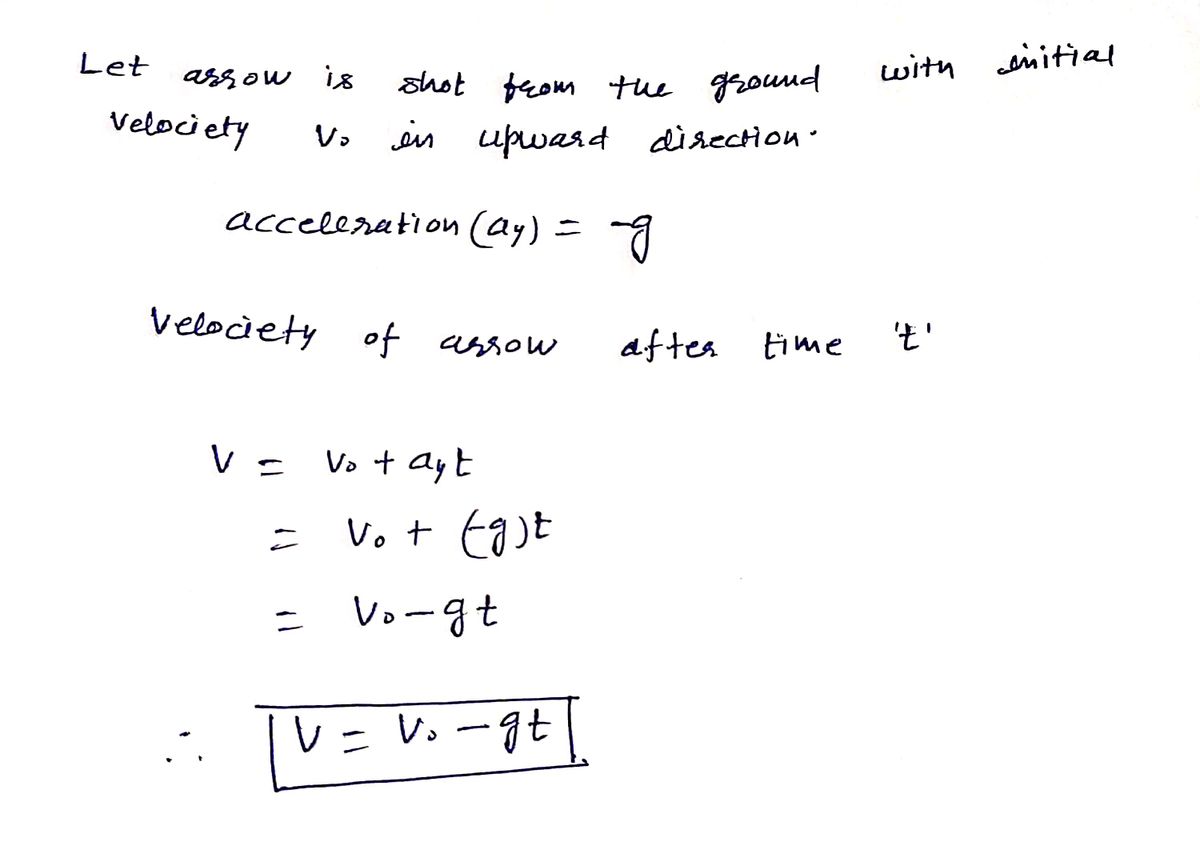 Let arrow is shot from the ground with initial
velociety V₀ in upward direction.
acceleration (ay) = -g
Velociety of arrow after time 't'
V = V₀ + ayt
= V₀ + (-g)t
= V₀ - gt
∴ V = V₀ - gt